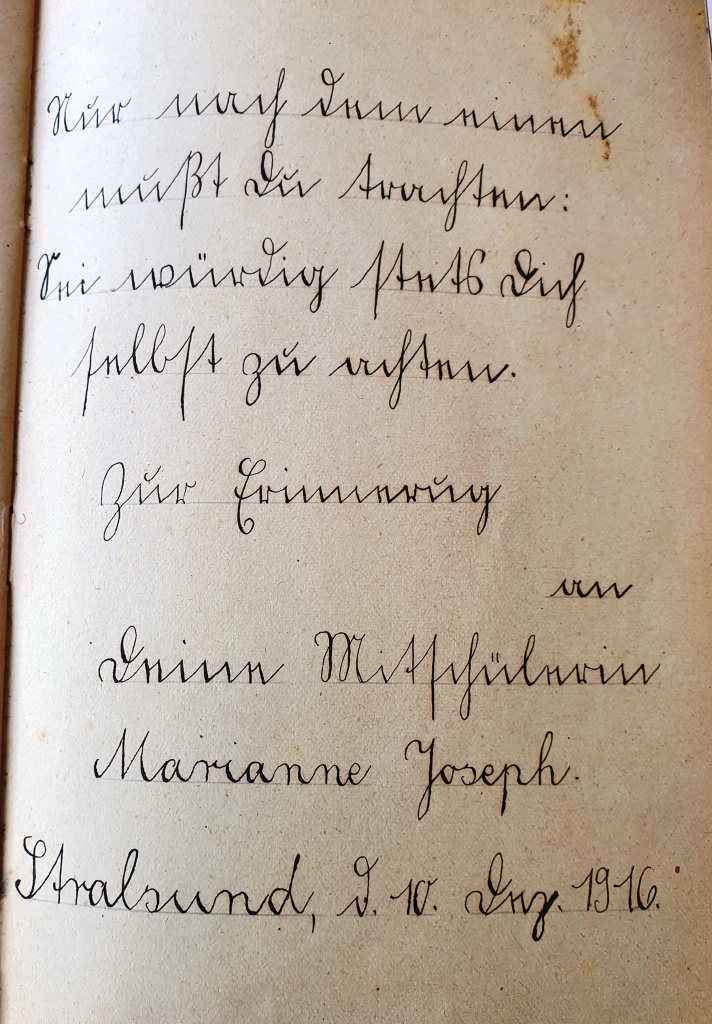 Nur nach dem einen
mußt Du trachten:
Sei würdig stets Dich
selbst zu achten.
Zur Erinnerug
an
Deine Mitschülerin
Marianne Joseph.
Stralsund, d. 10. Dez. 1916.